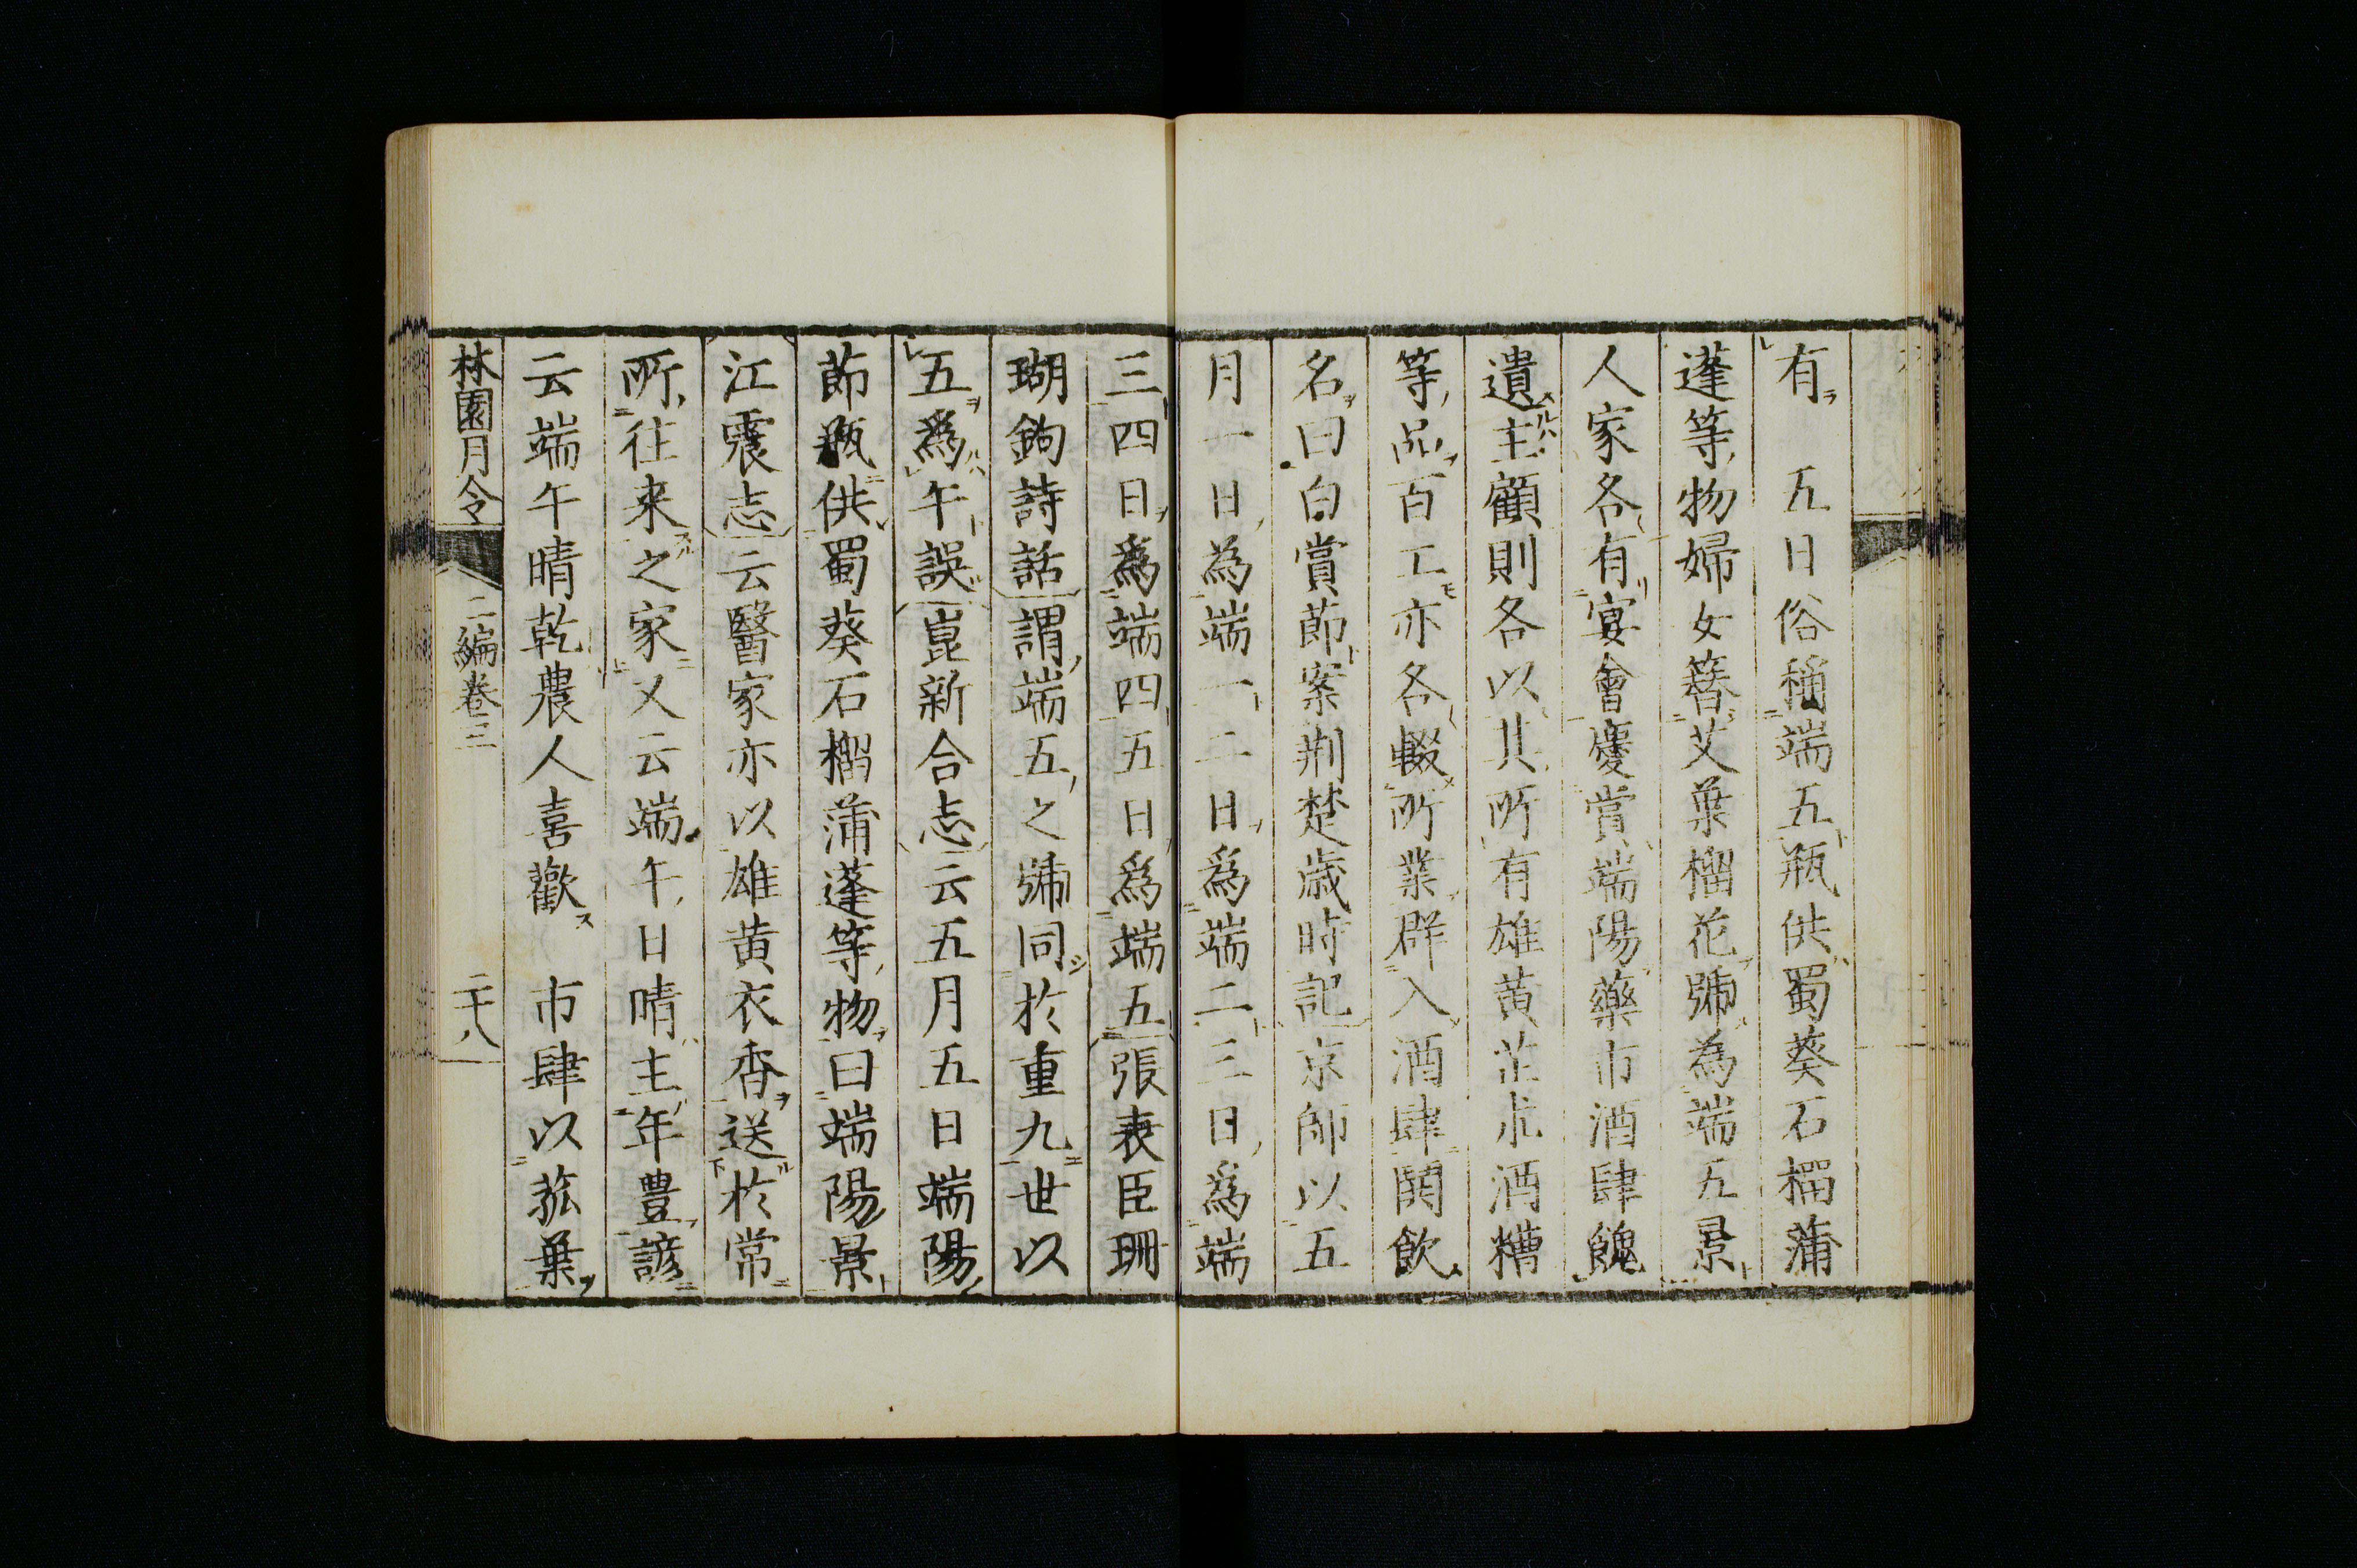 有　五日俗稱端五瓶供蜀葵石榴蒲
蓬等物婦女簪艾葉榴花號為端五景
人家各有宴會慶賞端陽藥市酒肆餽
遺主顧則各以其所有雄黄芷朮酒糟
等品百工亦各輟所業群入酒肆鬨飲
名曰白賞莭案荆楚歳時記京師以五
月一日為端一二日爲端二三日爲端
三四日爲端四五日爲端五張表臣珊
瑚鉤詩話謂端五之號同於重九世以
五爲午誤崑新合志云五月五日端陽
莭瓶供蜀葵石榴蒲蓬等物曰端陽景
江震志云醫家亦以雄黄衣香送於常
所往来之家又云端午日晴主年豊諺
云端午晴乾農人喜歡　市肆以菰葉
林園月令　二編卷三　二十八